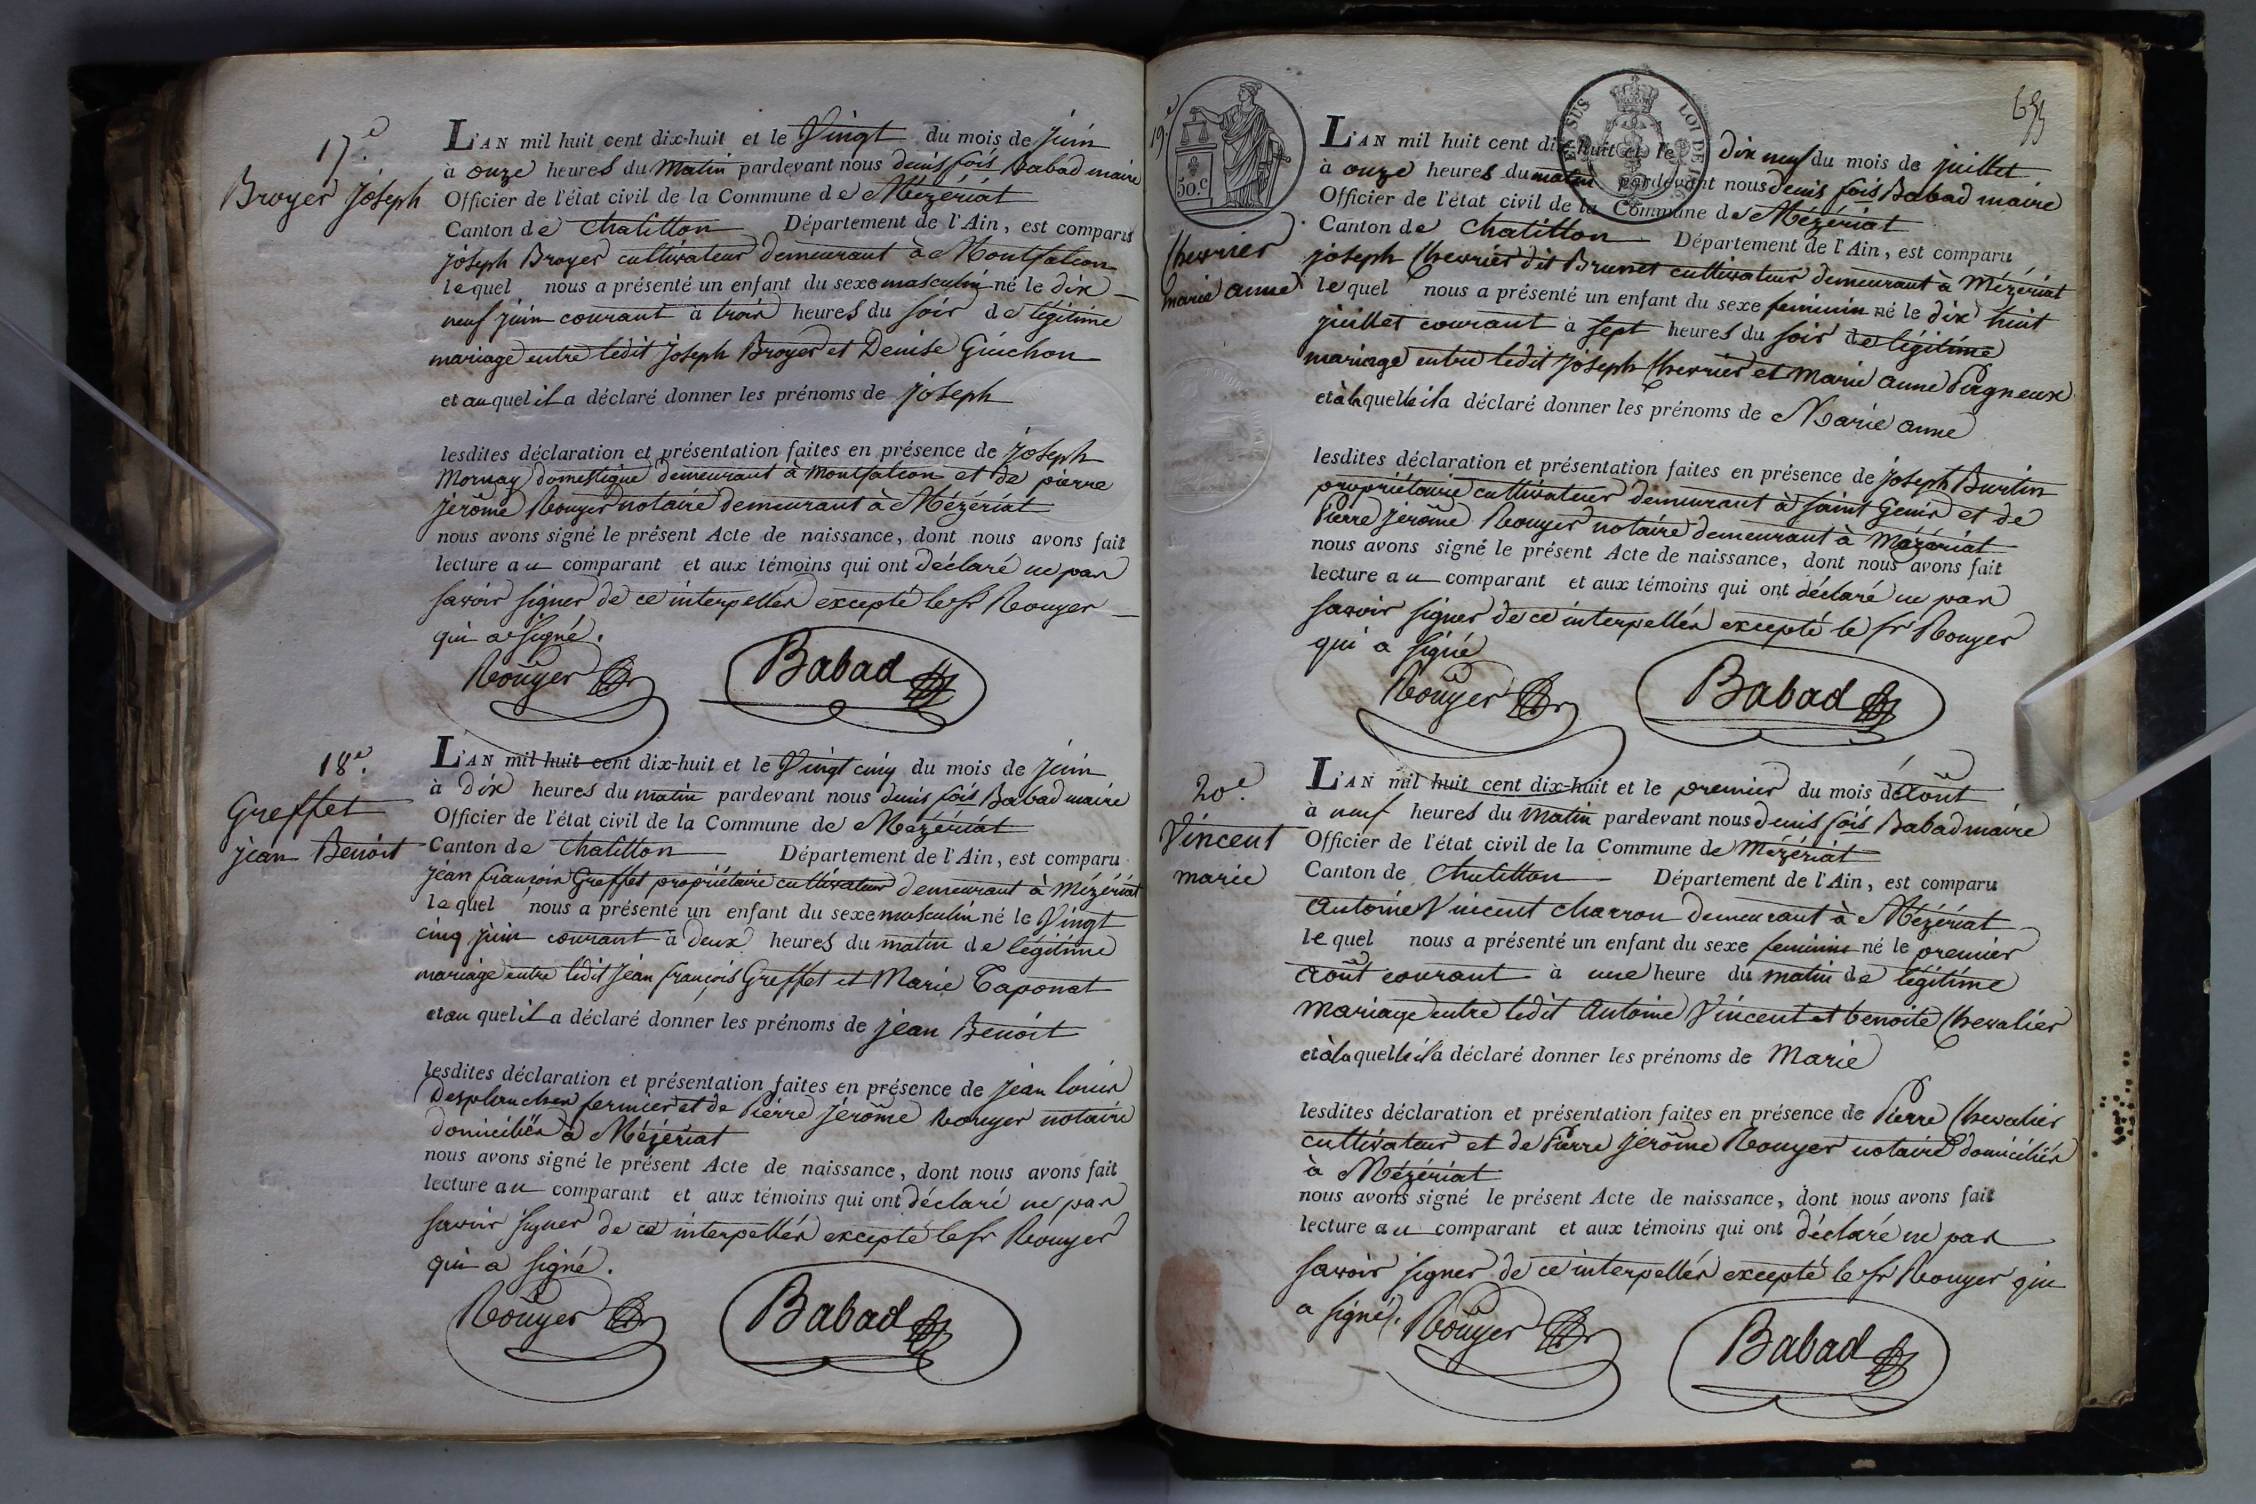 17.e
Broyer Joseph
L'AN mil huit cent dix-huit et le Vingt du mois de juin
à onze heures du matin pardevant nous denis fois Babad maire
Officier de l'état civil de la Commune de Mézériat
Canton de Chatillon Département de l'Ain, est comparu
joseph Broyer cultivateur demeurant à Montfalcon
lequel nous a présenté un enfant du sexe masculin né le dix
neuf juin courant à trois heures du soir de légitime
mariage entre ledit joseph Broyer et Denise Guichon
et auquel il a déclaré donner les prénoms de joseph
lesdites déclaration et présentation faites en présence de joseph
Mornay domestique demeurant à Montfalcon et de pierre
jérôme Rouyer notaire demeurant à Mézériat
nous avons signé le présent Acte de naissance, dont nous avons fait
lecture au comparant et aux témoins qui ont déclaré ne pas
savoir signer de ce interpellés excepté le sr Rouyer
qui a signé.
Rouyer Babad
18.e
Greffet
jean Benoit
L'AN mil huit cent dix-huit et le Vingt cinq du mois de juin
à dix heures du matin pardevant nous denis fois Babad maire
Officier de l'état civil de la Commune de Mézériat
Canton de Chatillon Département de l'Ain, est comparu
jean françois Greffet propriétaire cultivateur demeurant à Mézériat
lequel nous a présenté un enfant du sexe masculin né le Vingt
cinq juin courant à deux heures du matin de légitime
mariage entre ledit jean françois Greffet et Marie Taponat
et au quel il a déclaré donner les prénoms de jean Benoit
lesdites déclaration et présentation faites en présence de jean louis
Desplanches fermier et de Pierre jérôme Rouyer notaire
domiciliés à Mézériat
nous avons signé le présent Acte de naissance, dont nous avons fait
lecture au comparant et aux témoins qui ont déclaré ne pas
savoir signer de ce interpellés excepté le sr Rouyer
qui a signé.
Rouyer Babad
19.e
50.c
EN SUS LOI DE
Chevrier
marie anne
L'AN mil huit cent dix-huit et le dix neuf du mois de juillet
à onze heures du matin pardevant nous denis fois Babad maire
Officier de l'état civil de la Commune de Mézériat
Canton de Chatillon Département de l'Ain, est comparu
joseph Chevrier dit Brunet cultivateur demeurant à Mézériat
lequel nous a présenté un enfant du sexe feminin né le dix huit
juillet courant à sept heures du soir de légitime
mariage entre ledit joseph Chevrier et Marie anne Pagneux
et à laquelle il a déclaré donner les prénoms de Marie anne
lesdites déclaration et présentation faites en présence de joseph Burtin
propriétaire cultivateur demeurant à saint Genis et de
Pierre jérôme Rouyer notaire demeurant à Mézériat
nous avons signé le présent Acte de naissance, dont nous avons fait
lecture au comparant et aux témoins qui ont déclaré ne pas
savoir signer de ce interpellés excepté le sr Rouyer
qui a signé
Rouyer Babad
20.e
Vincent
marie
L'AN mil huit cent dix-huit et le premier du mois d'août
à neuf heures du matin pardevant nous denis fois Babad maire
Officier de l'état civil de la Commune de Mézériat
Canton de Chatillon Département de l'Ain, est comparu
Antoine Vincent charron demeurant à Mézériat
lequel nous a présenté un enfant du sexe feminin né le premier
août courant à une heure du matin de légitime
mariage entre ledit Antoine Vincent et benoite Chevalier
et à laquelle il a déclaré donner les prénoms de Marie
lesdites déclaration et présentation faites en présence de Pierre Chevalier
cultivateur et de Pierre jérôme Rouyer notaire domiciliés
à Mézériat
nous avons signé le présent Acte de naissance, dont nous avons fait
lecture au comparant et aux témoins qui ont déclaré ne pas
savoir signer de ce interpellés excepté le sr Rouyer qui
a signé. Rouyer Babad